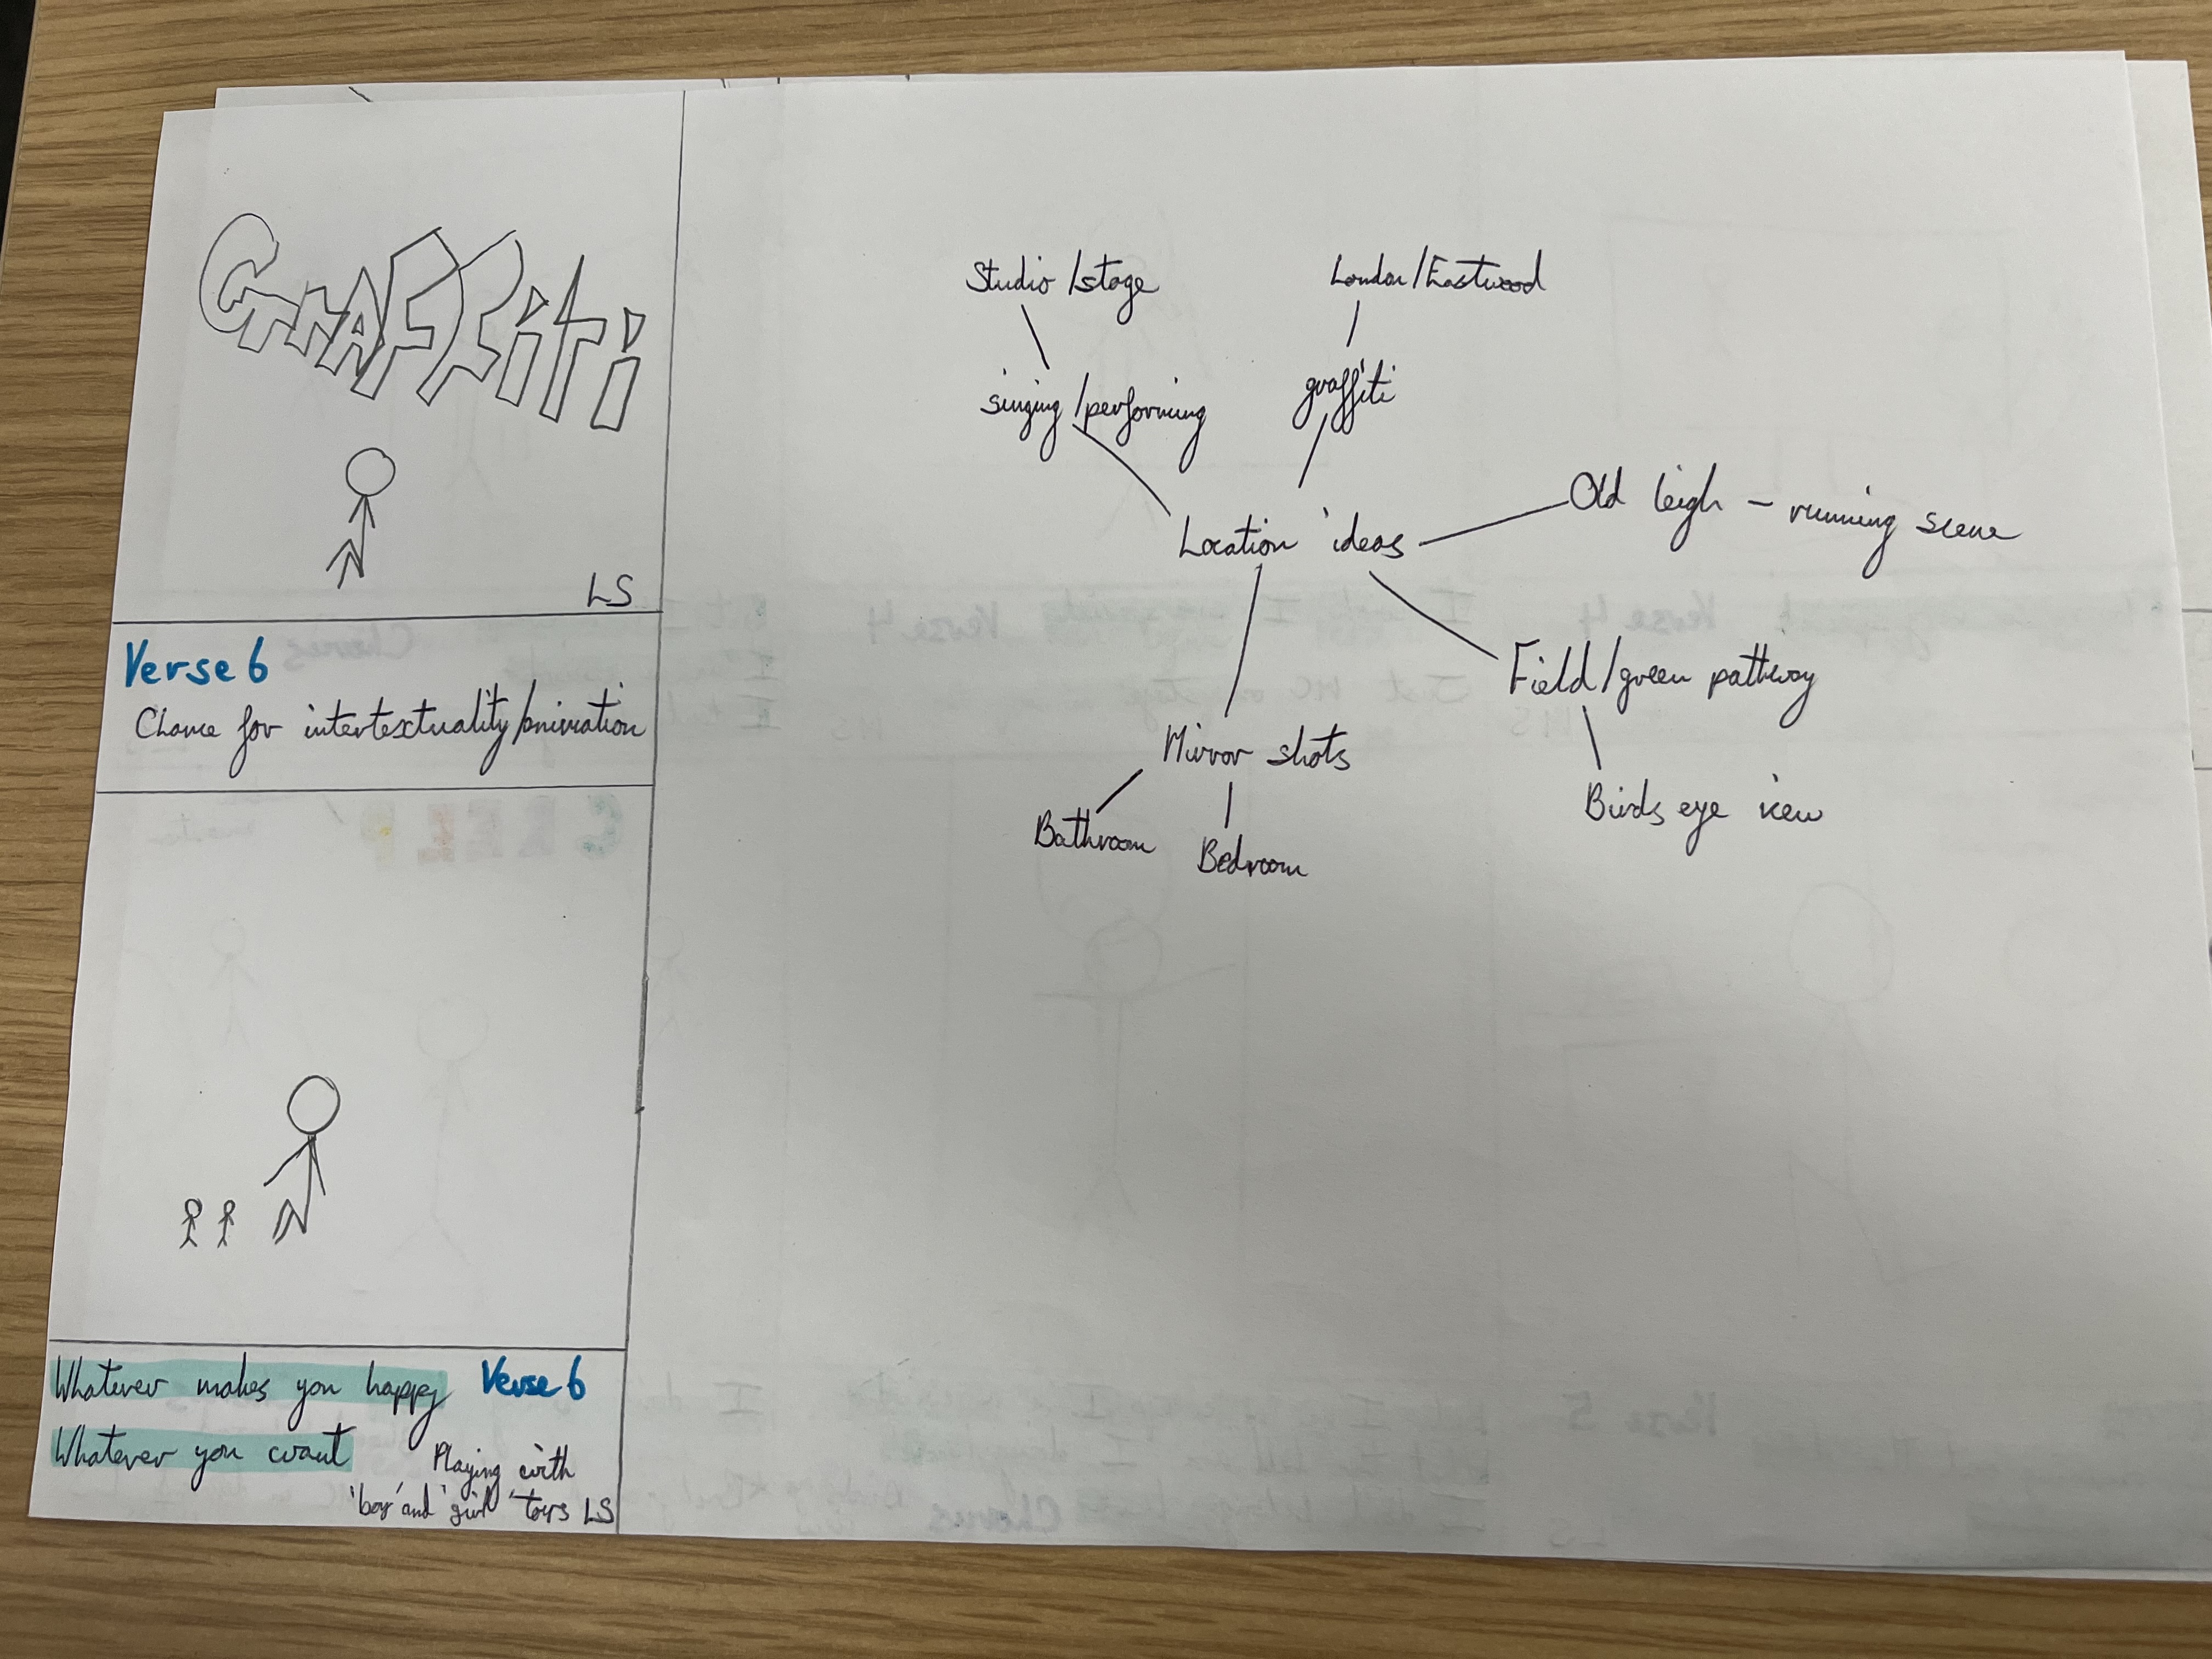 GrAFFiti
LS
Verse 6
Chance for intertextuality/animation
Whatever makes you happy Verse 6
Whatever you want
Playing with
'boy' and 'girl' toys LS
Studio/stage
singing/performing
London/Eastwood
graffiti
Location ideas
Old leigh - running scene
Field/green pathway
Birds eye view
Mirror shots
Bathroom
Bedroom